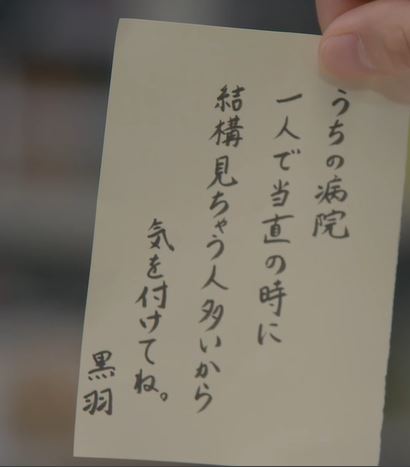 うちの病院
一人で当直の時に
結構見ちゃう人多いから
気を付けてね。
黒羽